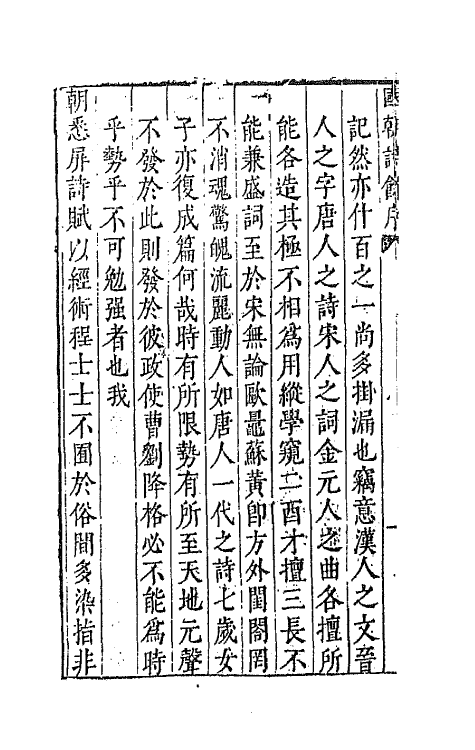 國朝詩餘序
記然亦什百之一尚多掛漏也竊意漢人之文晉
人之字唐人之詩宋人之詞金元人之曲各擅所
能各造其極不相為用縱學窺二酉才擅三長不
能兼盛詞至於宋無論歐晁蘇黃卽方外閨閤罔
不消魂驚魄流麗動人如唐人一代之詩七歲女
子亦復成篇何哉時有所限勢有所至天地元聲
不發於此則發於彼政使曹劉降格必不能為時
乎勢乎不可勉强者也我
朝悉屏詩賦以經術程士士不囿於俗間多染指非